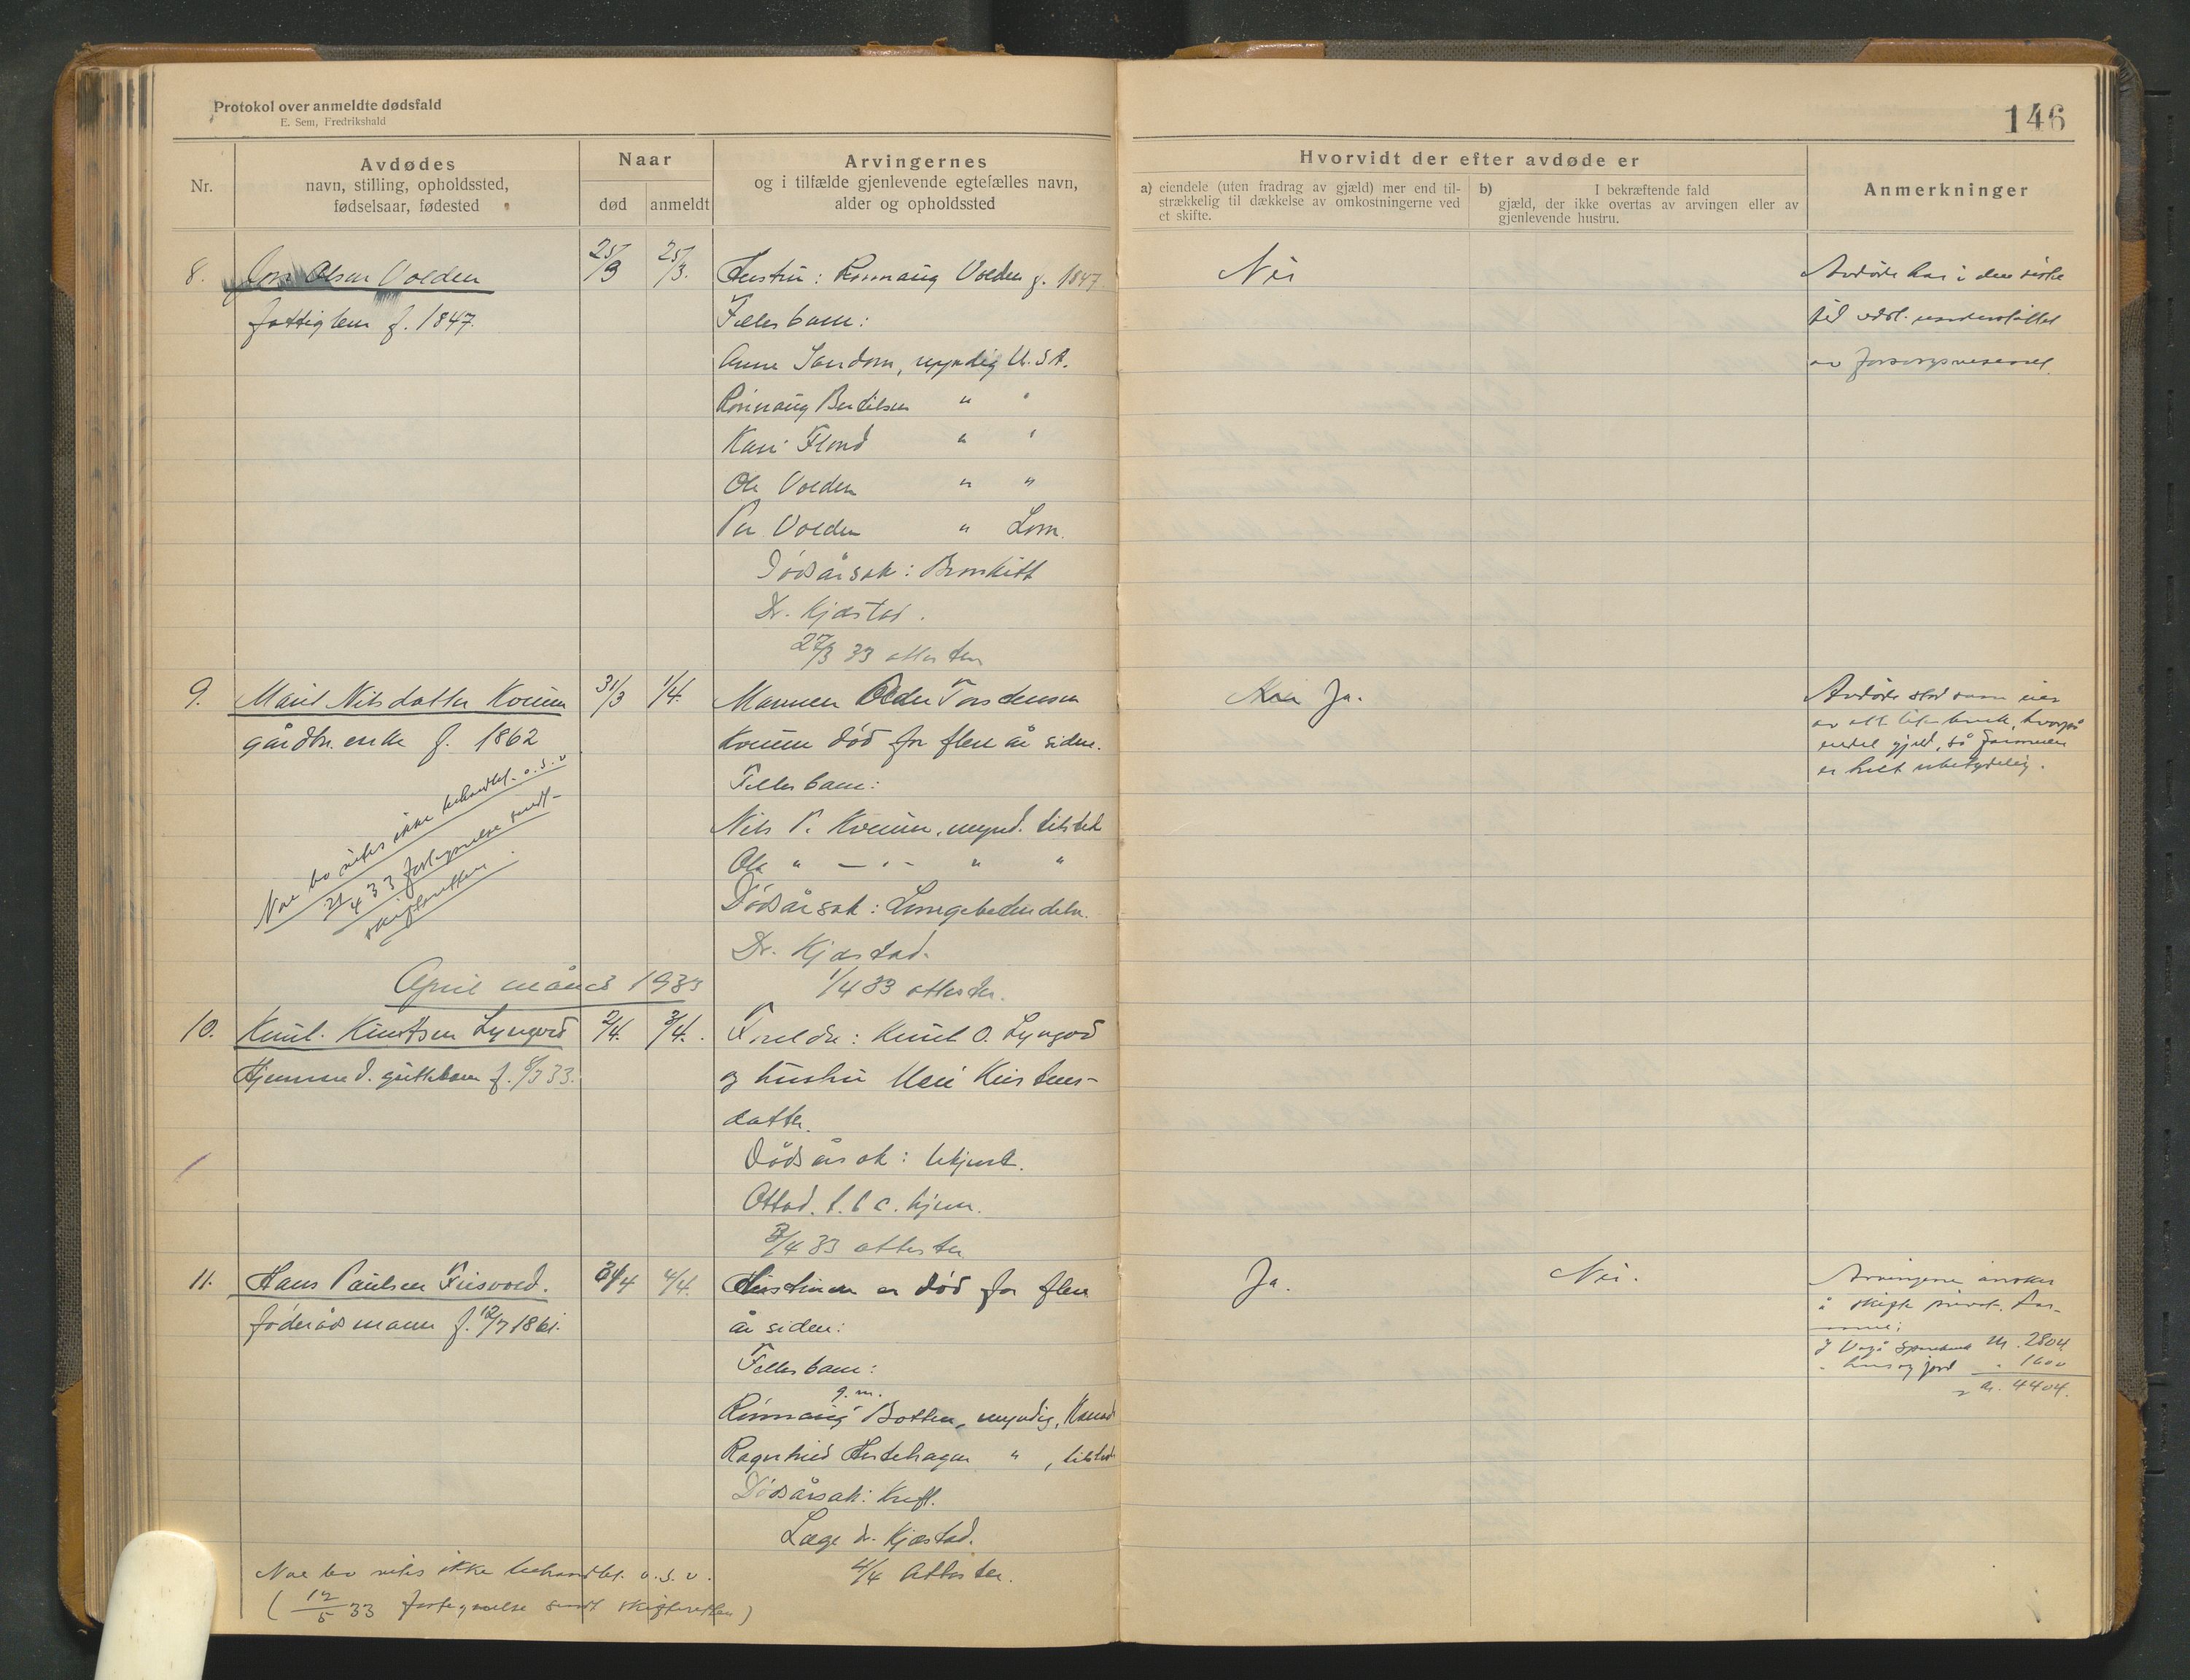 Protokol over anmeldte dødsfald
E. Sem, Fredrikshald
146
Nr.
Avdødes
navn, stilling, opholdssted,
fødselsaar, fødested
Naar
død
anmeldt
Arvingernes
og i tilfælde gjenlevende egtefælles navn,
alder og opholdssted
Hvorvidt der efter avdøde er
a) eiendele (uten fradrag av gjæld) mer end til-
strækkelig til dækkelse av omkostningerne ved
et skifte.
b) I bekræftende fald
gjæld, der ikke overtas av arvingen eller av
gjenlevende hustru.
Anmerkninger
8. Olsen Volden
fattiglem f. 1847.
25/3
25/3.
Hustru: Rønnaug Volden f. 1847
Felles barn:
Anne Sandom, myndig U.S.A.
Rønnaug " "
Kari " "
Ole Volden " "
Per Volden " Lom.
Dødsårsak: Bronkitt
Dr. Kjæstad.
27/3 33 attester
Nei
Avdøde har i den siste
tid vært understøttet
av forsorgsvesenet.
9. Marit Nilsdatter Kvenn
gårdbr. enke f. 1862
31/3
1/4.
Mannen Torstensen
død for flere år siden.
Felles barn:
Nils P. , mynd. tilsted
Ola " — " — " "
Dødsårsak: Lungebetendelse.
Dr. Kjæstad.
1/4 33 attester.
Nei Ja.
Avdøde stod som eier
av ett lite bruk, hvorpå
endel gjeld, så formuen
er helt ubetydelig.
Noe bo vites ikke behandlet o.s.v
21/4 33 fortegnelse sendt
skifteretten.
April måned 1933
10. Knut Knutsen Lyngved
Hjemmev. guttebarn f. 8/3 33.
2/4.
3/4.
Foreldre: Knut O. Lyngved
og hustru Mari Kristens-
datter.
Dødsårsak: Ukjent.
Ottad. t. b c. hjem.
3/4 33 attester
11. Hans Paulsen Frisvold.
føderådsmann f. 12/7 1861.
4/4.
Hustruen er død for flere
år siden:
Felles barn:
g. m.
Rønnaug Botten, myndig,
Ragnhild Hestehagen " , tilsted
Dødsårsak: Kreft.
Læge dr. Kjæstad.
4/4 Attester.
Ja.
Nei.
Arvingerne ønsker
å skifte privat. For-
mue:
I Vågå Sparebank kr. 2804
" hus og jord " 1600
= kr. 4404.
Noe bo vites ikke behandlet o.s.v.
(12/5 33 fortegnelse sendt skifteretten)